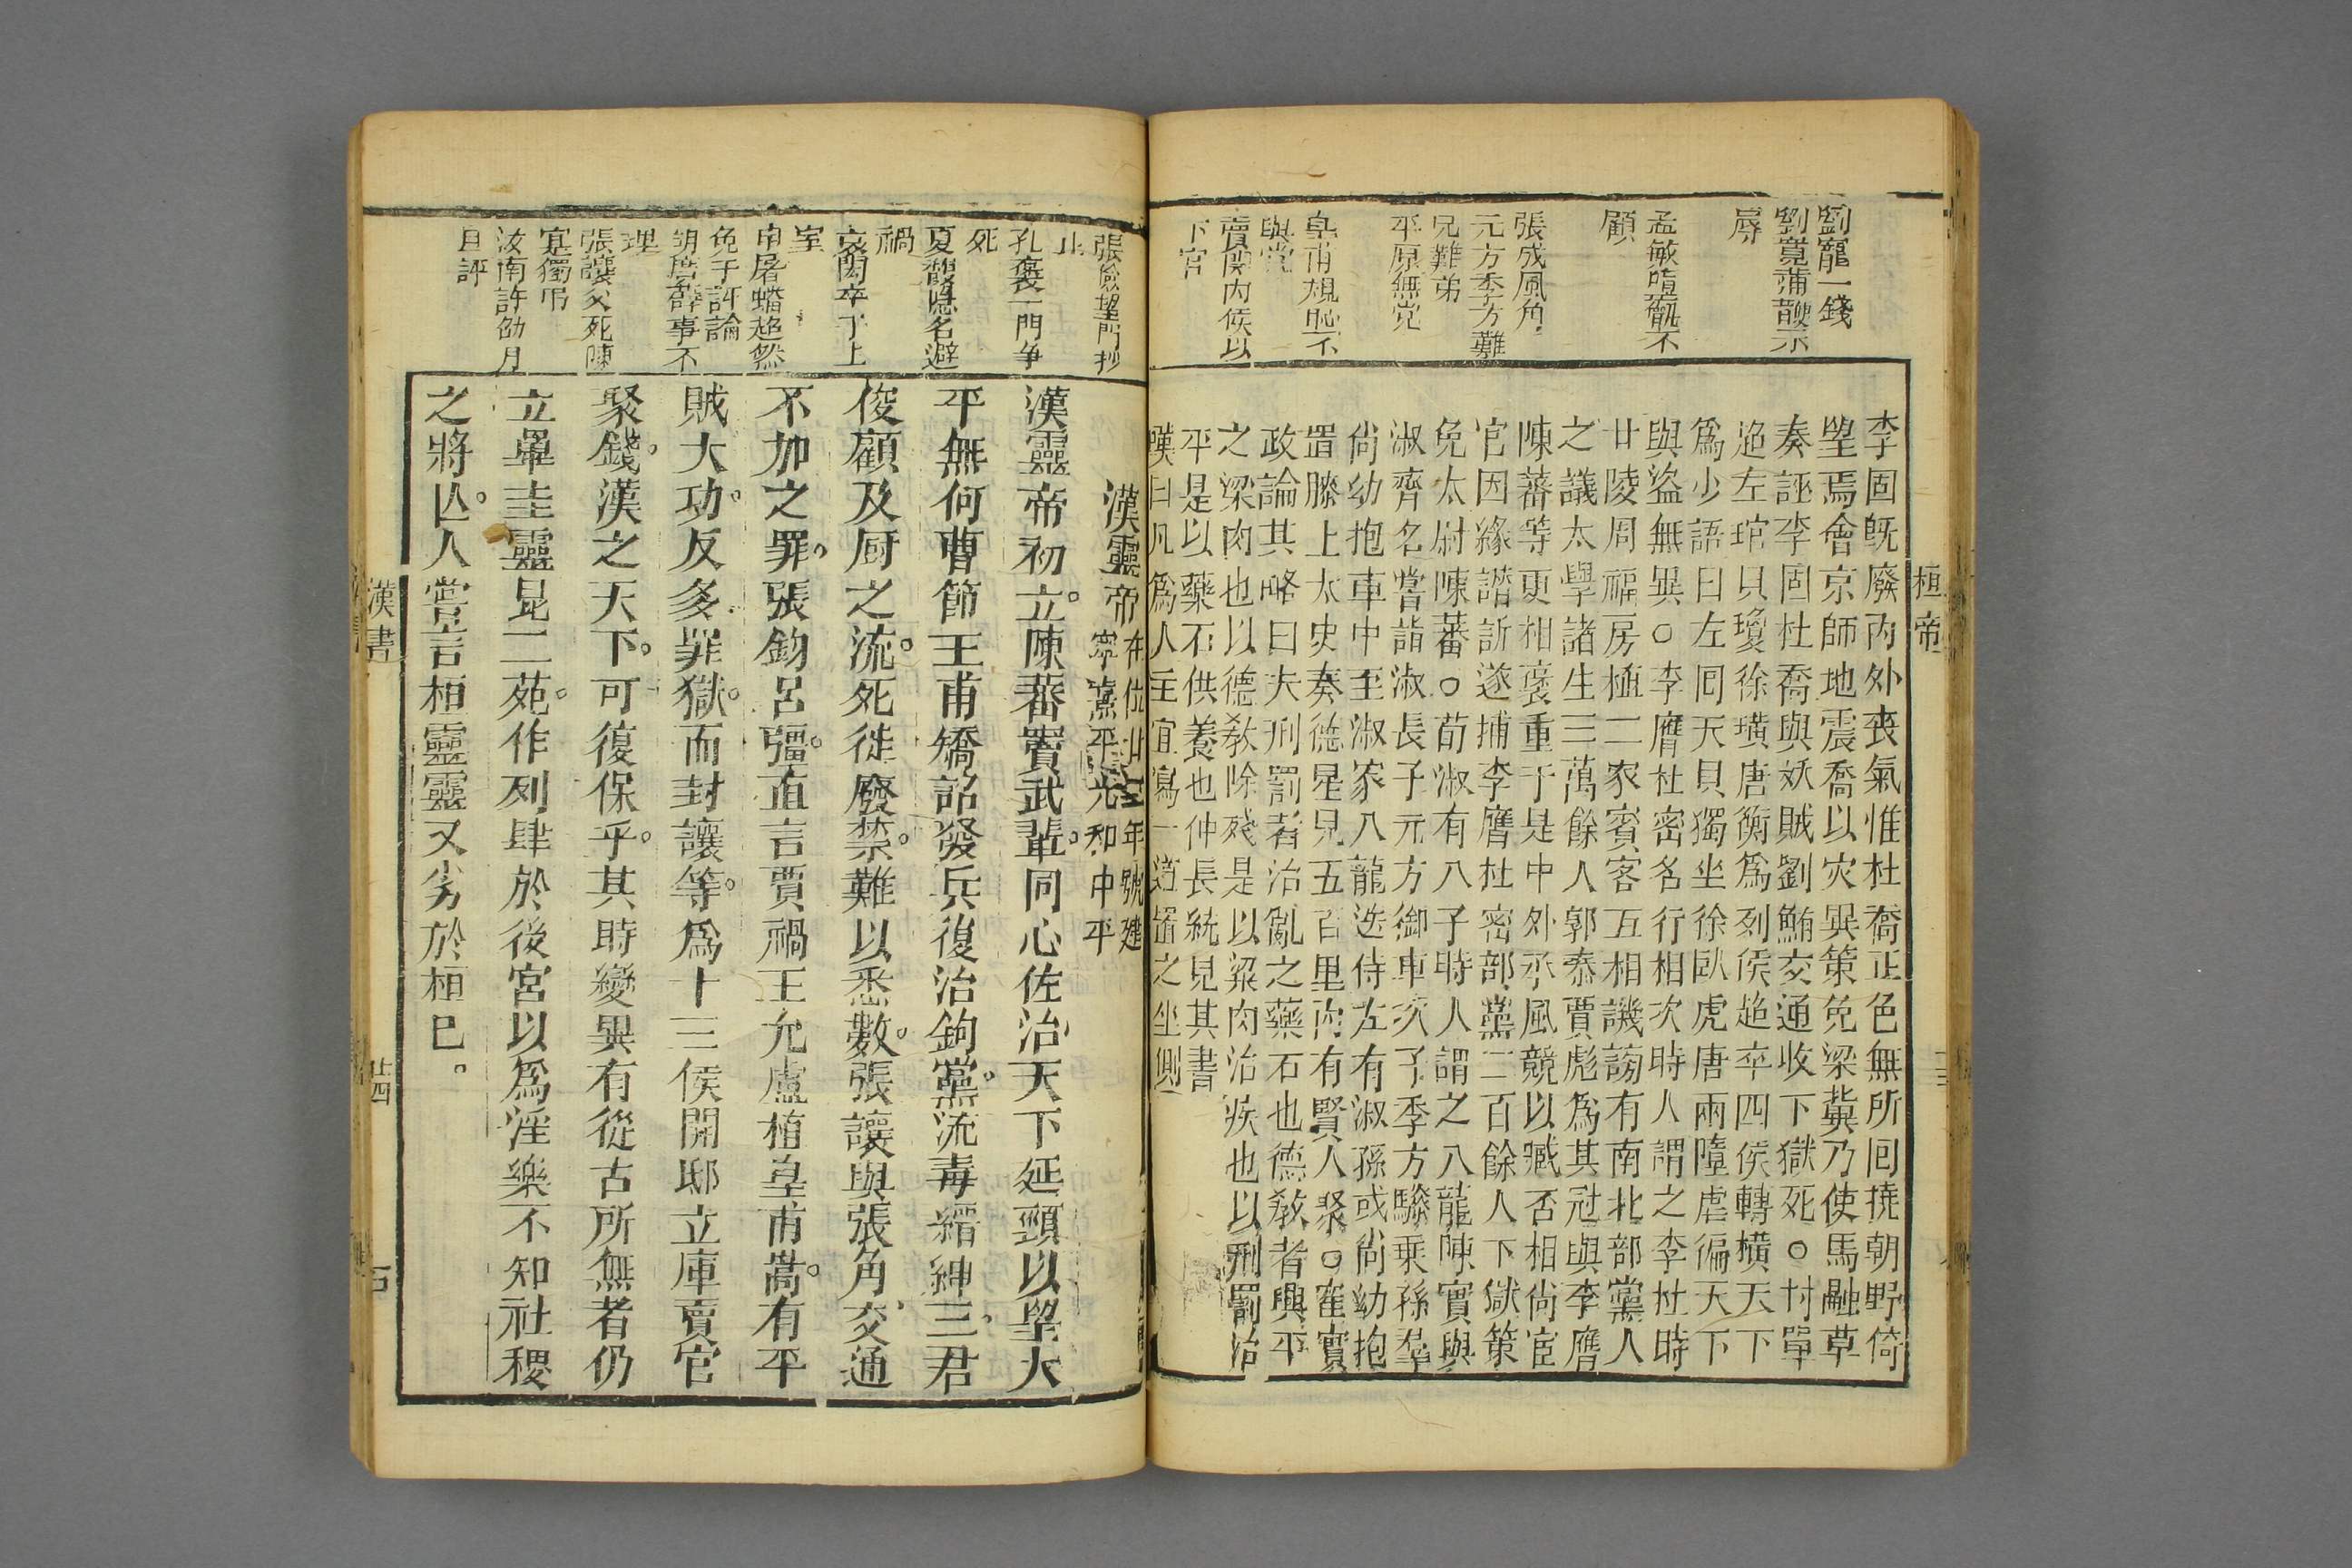 劉寵一錢
劉寬蒲鞭示
辱
孟敏墮甑不
顧
張成風角
元方季方難
兄難弟
平原無党
皇甫規恥不
與党
賣関内侯以
下官
桓帝
李固旣廢內外喪氣惟杜喬正色無所回撓朝野倚
望焉會京師地震喬以灾異策免梁冀乃使馬融草
奏誣李固杜喬與妖賊劉鮪交通收下獄死○封單
超左琯具瓊徐璜唐衡為列侯超卒四侯轉橫天下
爲少語曰左囘天貝獨坐徐臥虎唐兩墮虐徧天下
與盗無異○李膺杜密名行相次時人謂之李杜時
甘陵周福房植二家賓客互相譏謗有南北部黨人
之議太學諸生三萬餘人郭泰賈彪爲其冠與李膺
陳蕃等更相褒重于是中外承風競以臧否相尙宦
官因緣譖訴遂捕李膺杜密部黨二百餘人下獄策
免太尉陳蕃○荀淑有八子時人謂之八龍陳實與
淑齊名嘗詣淑長子元方御車次子季方驂乗孫羣
尙幼抱車中至淑家八龍迭侍左有淑孫或尙幼抱
置膝上太史奏德星見五百里內有賢人聚○崔實
政論其略曰夫刑罰者治亂之藥石也德敎者興平
之梁肉也以德敎除殘是以粱肉治疾也以刑罰治
平是以藥石供養也仲長統見其書
嘆曰凡爲人主宜寫一通置之坐側
張儉望門抄
止
孔褒一門争
死
夏馥隱名避
禍
袁閎卒于土
室
申屠蟠超然
免于評論
胡廣辭事不
理
張讓父死陳
寔獨弔
汝南許劭月
旦評
漢靈帝
在位廿二年號建
寧熹平光和中平
漢靈帝初立陳蕃竇武輩同心佐治天下延頸以望太
平無何曹節王甫矯詔發兵復治鉤黨流毒縉紳三君
俊顧及厨之流死徙廢禁難以悉數張讓與張角交通
不加之罪張鈞呂彊直言賈禍王允盧植皇甫嵩有平
賊大功反多罪獄而封讓等爲十三侯開邸立庫賣官
聚錢漢之天下可復保乎其時變異有從古所無者仍
立畢圭靈昆二苑作列肆於後宮以爲淫樂不知社稷
之將亡人嘗言桓靈靈又劣於桓巳
漢書
廿四